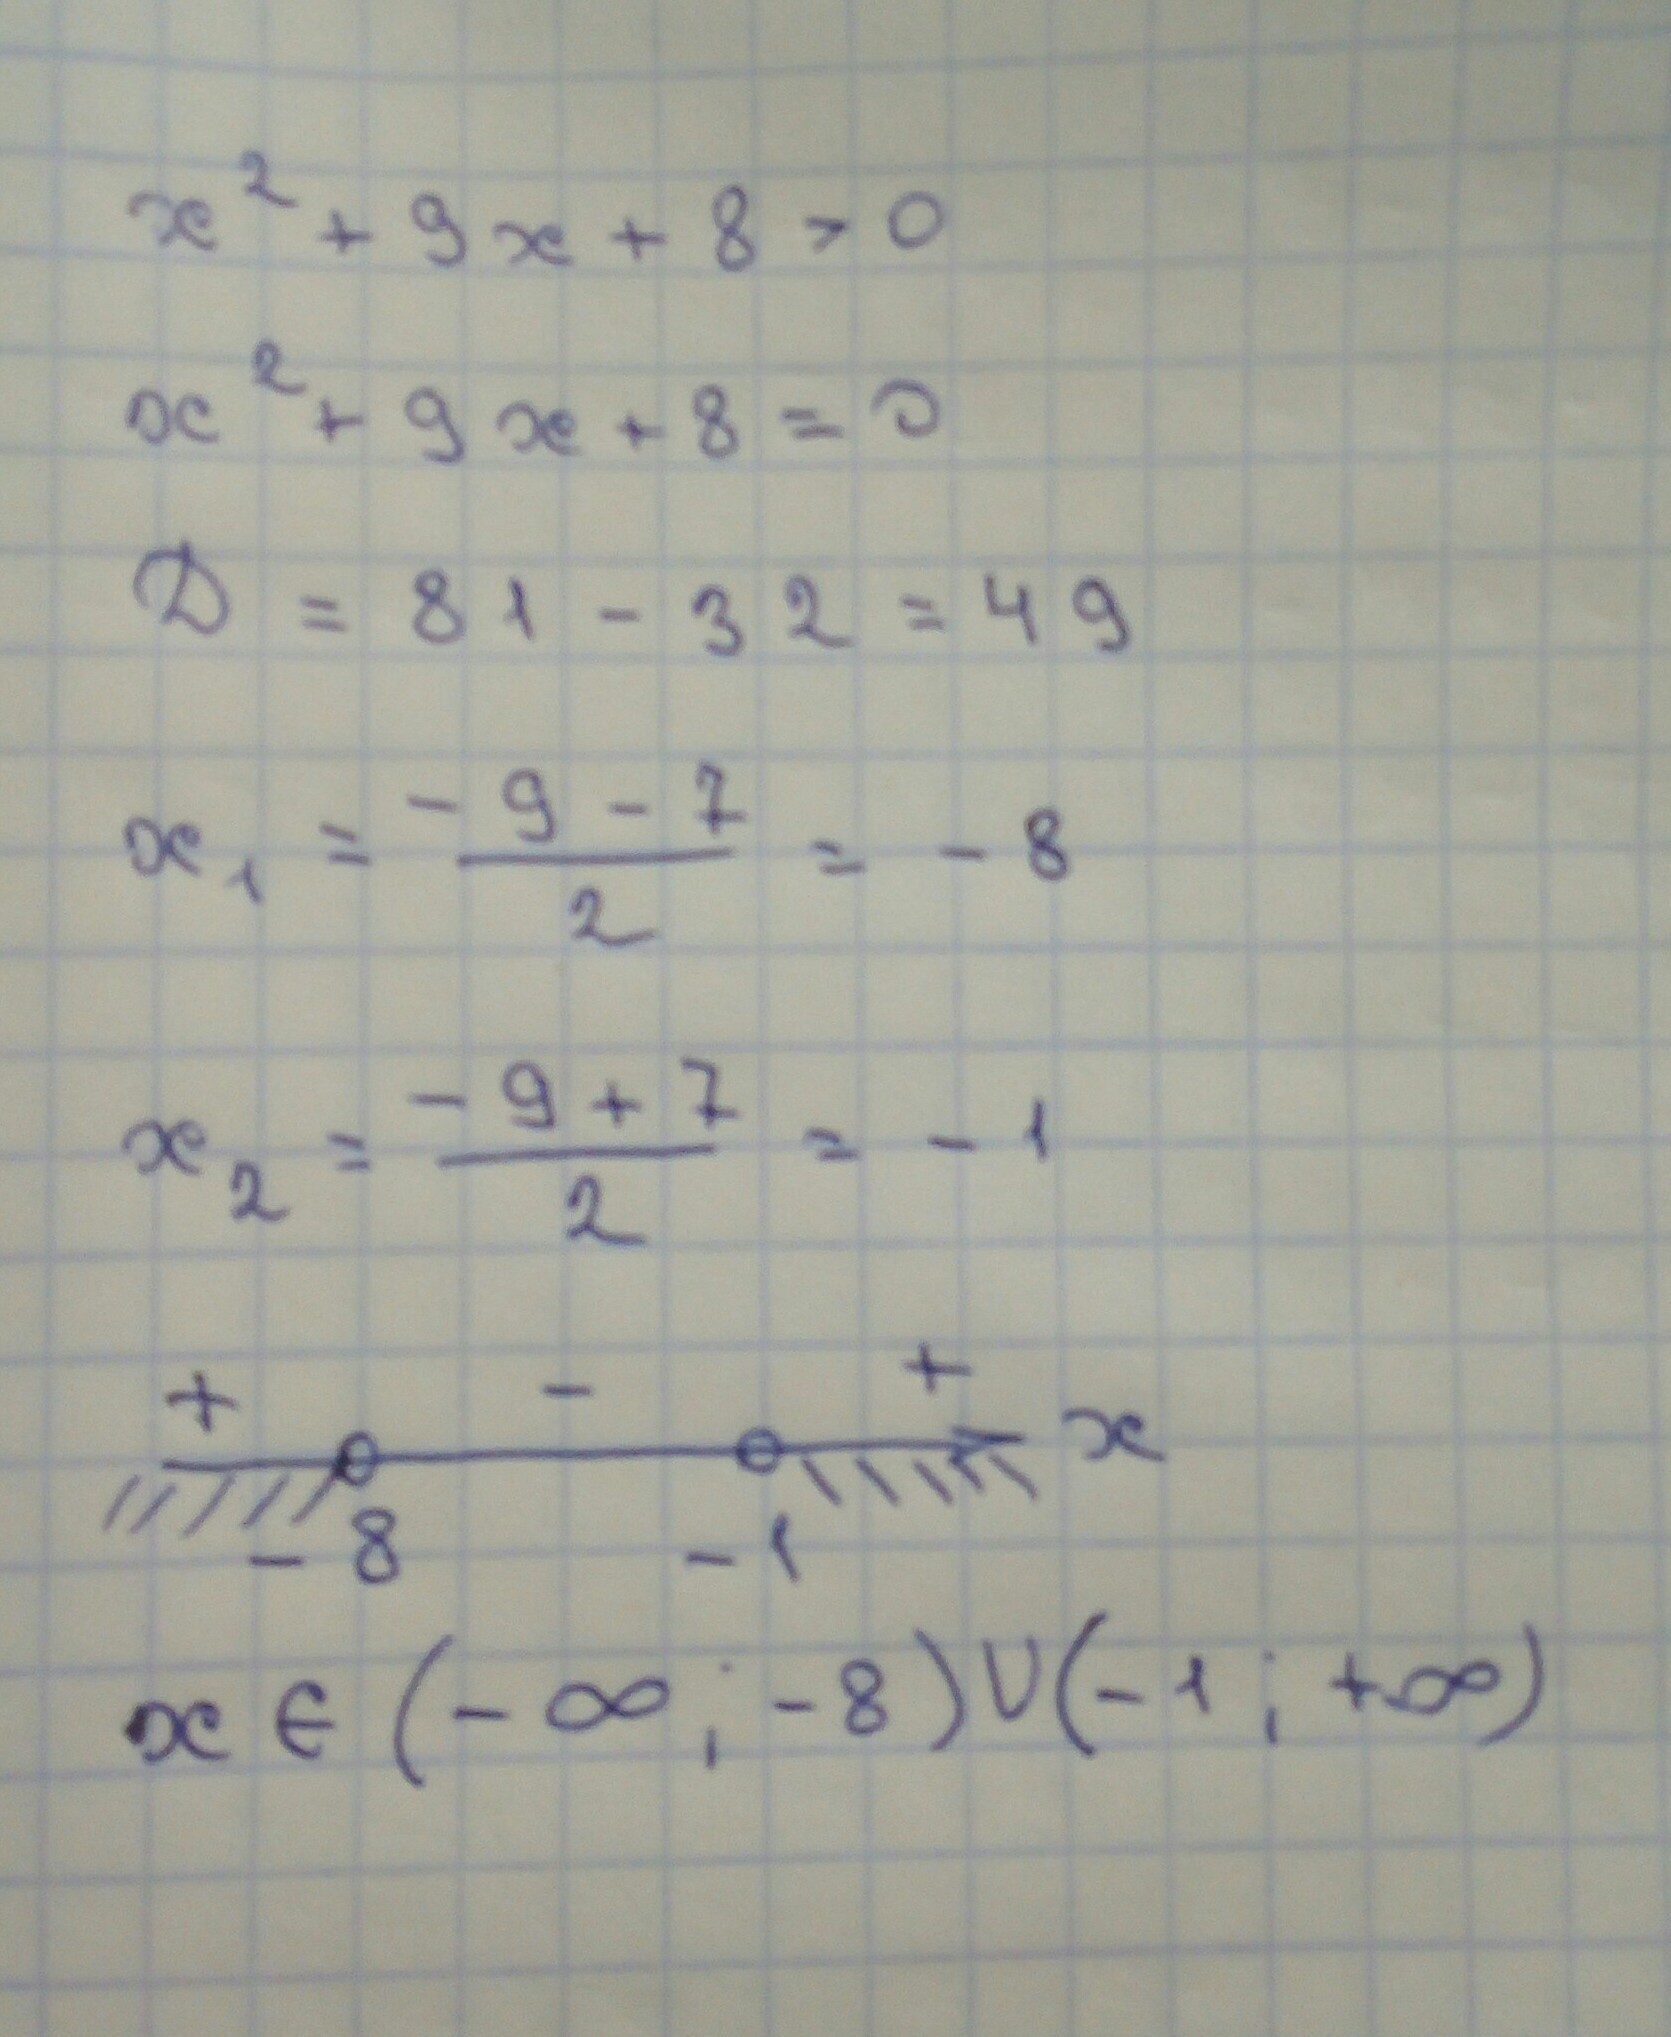 x² + 9x + 8 > 0
x² + 9x + 8 = 0
D = 81 - 32 = 49
x₁ = (-9 - 7)/2 = -8
x₂ = (-9 + 7)/2 = -1
+ - + x
-8 -1
x ∈ (-∞; -8) ∪ (-1; +∞)